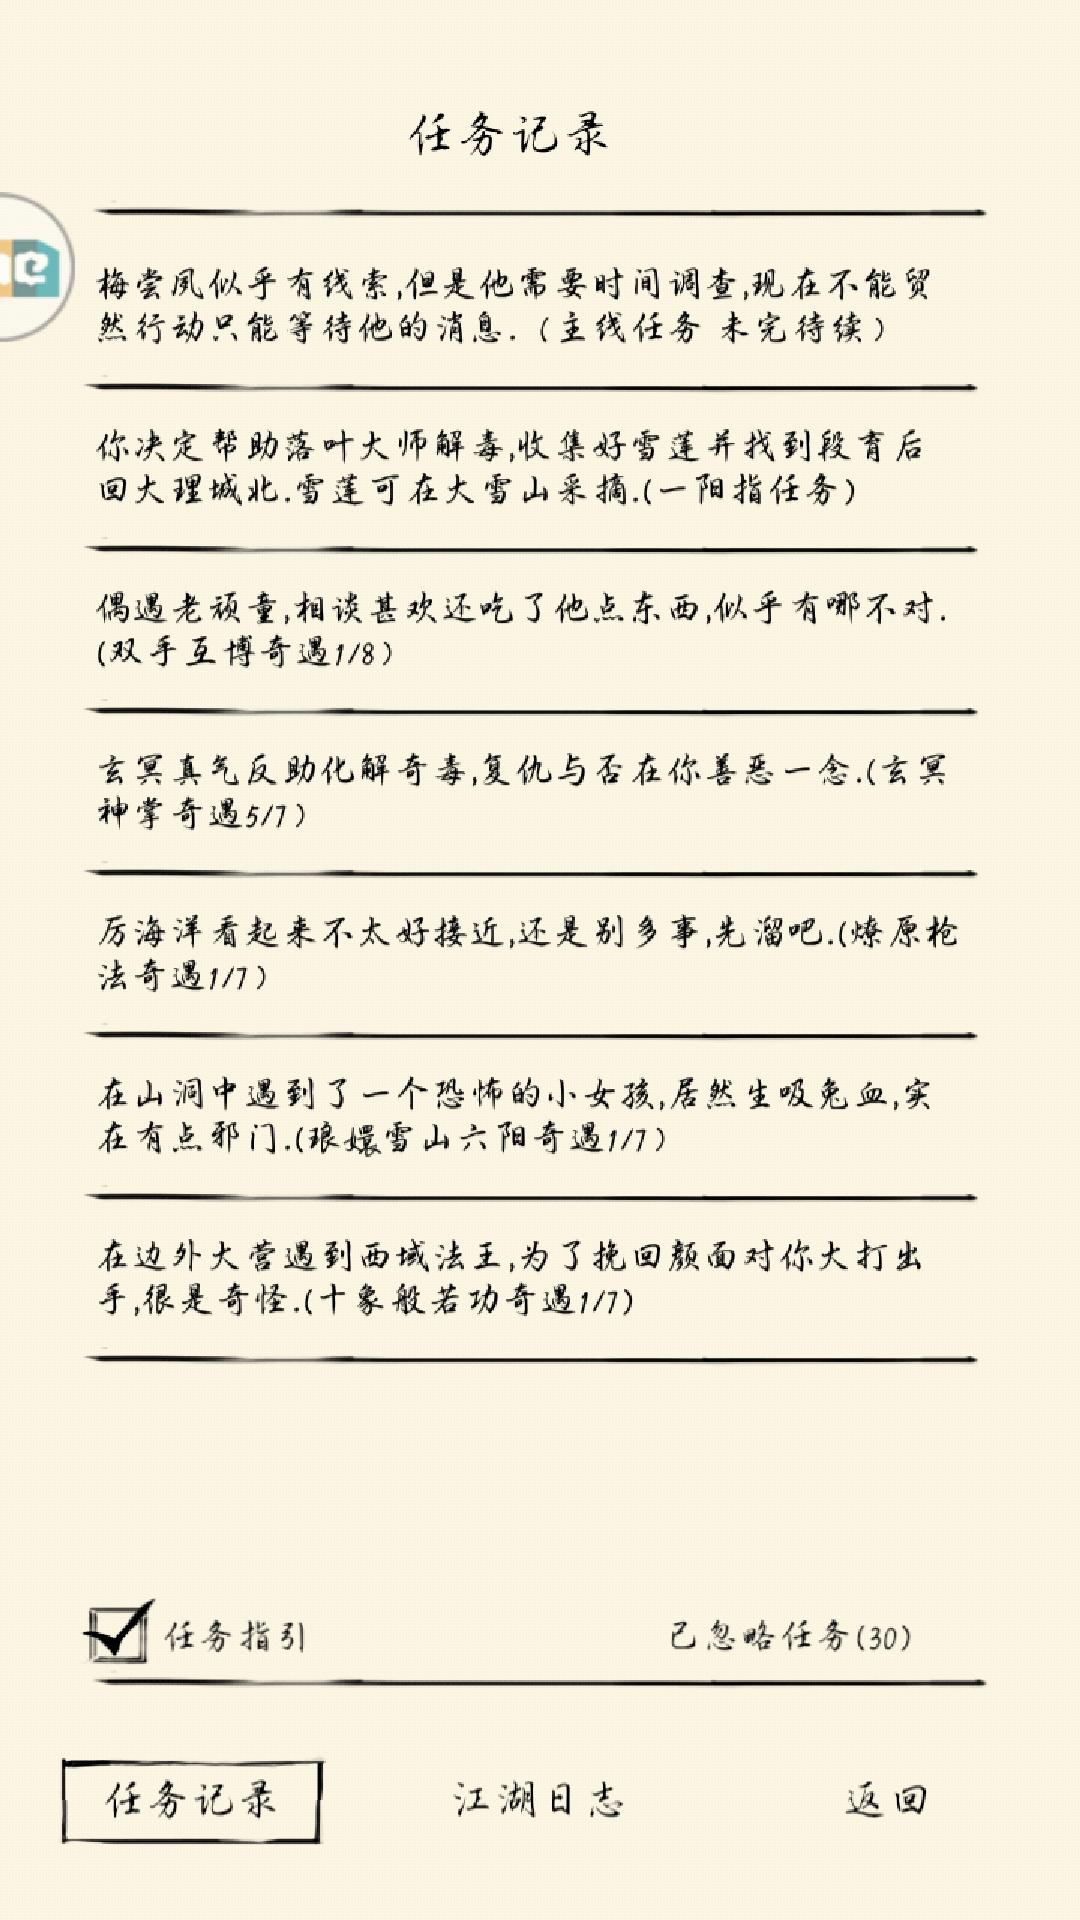 任务记录
梅尝夙似乎有线索,但是他需要时间调查,现在不能贸
然行动只能等待他的消息.（主线任务 未完待续）
你决定帮助落叶大师解毒,收集好雪莲并找到段育后
回大理城北.雪莲可在大雪山采摘.(一阳指任务)
偶遇老顽童,相谈甚欢还吃了他点东西,似乎有哪不对.
(双手互博奇遇1/8)
玄冥真气反助化解奇毒,复仇与否在你善恶一念.(玄冥
神掌奇遇5/7)
厉海洋看起来不太好接近,还是别多事,先溜吧.(燎原枪
法奇遇1/7)
在山洞中遇到了一个恐怖的小女孩,居然生吸兔血,实
在有点邪门.(琅嬛雪山六阳奇遇1/7)
在边外大营遇到西域法王,为了挽回颜面对你大打出
手,很是奇怪.(十象般若功奇遇1/7)
任务指引
已忽略任务(30)
任务记录
江湖日志
返回